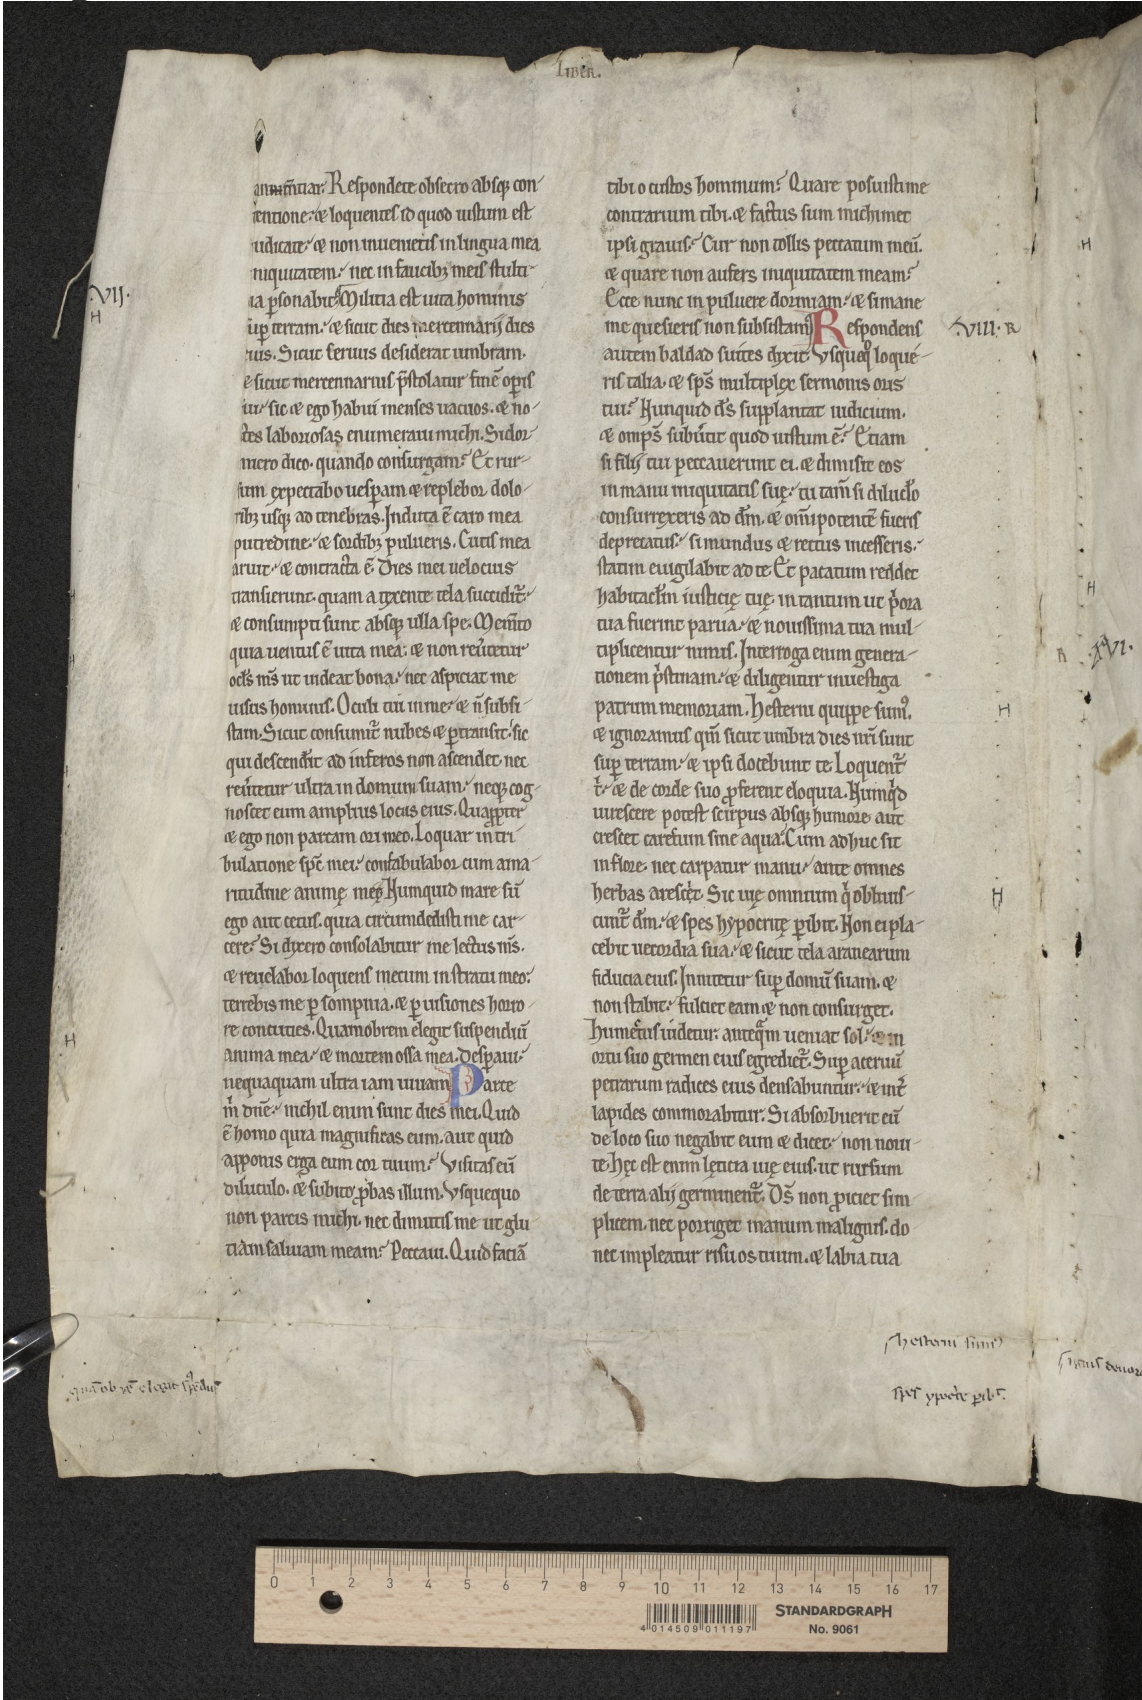 LIBER.
Respondete obsecro absq; con-
tentione. & loquentes id quod iustum est
iudicate. & non inuenietis in lingua mea
iniquitatem. nec in faucib; meis stulti-
ia ꝑsonabit. Militia est uita hominis
VII.
H
suꝑ terram. & sicut dies mercennarij dies
eius. Sicut seruus desiderat umbram.
& sicut mercennarius p̄stolatur finē oꝑis
sui. sic & ego habui menses uacuos. & no-
ctes laboriosas enumeraui michi. Si dor-
miero dico. quando consurgam? Et rur-
sum expectabo uesꝑam & replebor dolo-
rib; usq; ad tenebras. Induta ē caro mea
putredine. & sordib; pulueris. Cutis mea
aruit. & contracta ē. Dies mei uelocius
transierunt. quam a texente tela succidit᷑.
& consumpti sunt absq; ulla spe. Mem̄to
quia uentus ē uita mea. & non reu̓tetur
ocl̓s m̄s ut uideat bona. nec aspiciat me
uisus hominis. Oculi tui in me. & n̄ subsi-
stam. Sicut consumit᷑ nubes & ꝑtransit. sic
qui descendit ad inferos non ascendet. nec
reu̓tetur ultra in domum suam. neq; cog-
noscet eum amplius locus eius. Quaꝓpter
& ego non parcam ori meo. Loquar in tri-
bulatione sp̄c mei. confabulabor cum ama-
ritudine animę meę. Numquid mare sū
ego aut cetus. quia circumdedisti me car-
cere? Si dixero consolabitur me lectus m̄s.
& reuelabor loquens mecum in stratu meo:
terrebis me ꝑ sompnia. & ꝑ uisiones horro-
re concuties. Quamobrem elegit suspendiū
H
anima mea. & mortem ossa mea. Desꝑaui.
nequaquam ultra iam uiuam. Parce
m̓ dn̄e. nichil enim sunt dies mei. Quid
ē homo quia magnificas eum. aut quid
apponis erga eum cor tuum? Visitas eū
diluculo. & subito ꝓbas illum. Vsquequo
non parcis michi. nec dimittis me ut glu-
tiam saliuam meam? Peccaui. Quid faciā
quā ob rē elegit suspēdiū
tibi o custos hominum? Quare posuisti me
contrarium tibi. & factus sum michimet
ipsi grauis? Cur non tollis peccatum meū.
& quare non aufers iniquitatem meam?
Ecce nunc in puluere dormiam. & si mane
me quesieris non subsistam. Respondens
VIII. R
autem baldad suites dixit. Vsqueq̊ loque-
ris talia. & sp̄s multiplex sermonis oris
tui? Nunquid d̄s supplantat iudicium.
& omp̄s subu̓tit quod iustum ē? Etiam
si filij tui peccauerunt ei. & dimisit eos
in manu iniquitatis suę. tu tam̄ si dilucl̓o
consurrexeris ad dm̄. & om̄ipotentē fueris
deprecatus. si mundus & rectus incesseris.
statim euigilabit ad te. Et pacatum reddet
habitacl̓m iusticię tuę. in tantum ut p̓ora
tua fuerint parua. & nouissima tua mul-
tiplicentur nimis. Interroga enim genera-
tionem p̓stinam. & diligenter inuestiga
patrum memoriam. Hesterni quippe sumꝰ.
H
& ignoramus qm̄ sicut umbra dies nr̄i sunt
suꝑ terram. & ipsi docebunt te. Loquent᷑
t̓. & de corde suo ꝓferent eloquia. Numq̓d
uirescere potest scirpus absq; humore. aut
crescet carectum sine aqua? Cum adhuc sit
in flore. nec carpatur manu. ante omnes
herbas arescit. Sic uię omnium q̓ obliuis-
H
cunt᷑ dm̄. & spes hypocritę ꝑibit. Non ei pla-
cebit uecordia sua. & sicut tela aranearum
fiducia eius. Innitetur suꝑ domū suam. &
non stabit. fulciet eam & non consurget.
Humectus uidetur. anteq̄m ueniat sol. & in
ortu suo germen eius egrediet᷑. Suꝑ aceruū
petrarum radices eius densabuntur. & int̓
lapides commorabitur. Si absorbuerit eū
de loco suo negabit eum & dicet. non noui
te. Hęc est enim lęticia uię eius. ut rursum
de terra alij germinent᷑. D̄s non ꝓiciet sim-
plicem. nec porriget manum malignis. do-
nec impleatur risu os tuum. & labia tua
hesterni sumꝰ
spes ypocrite ꝑibit
H
H
R XVI.